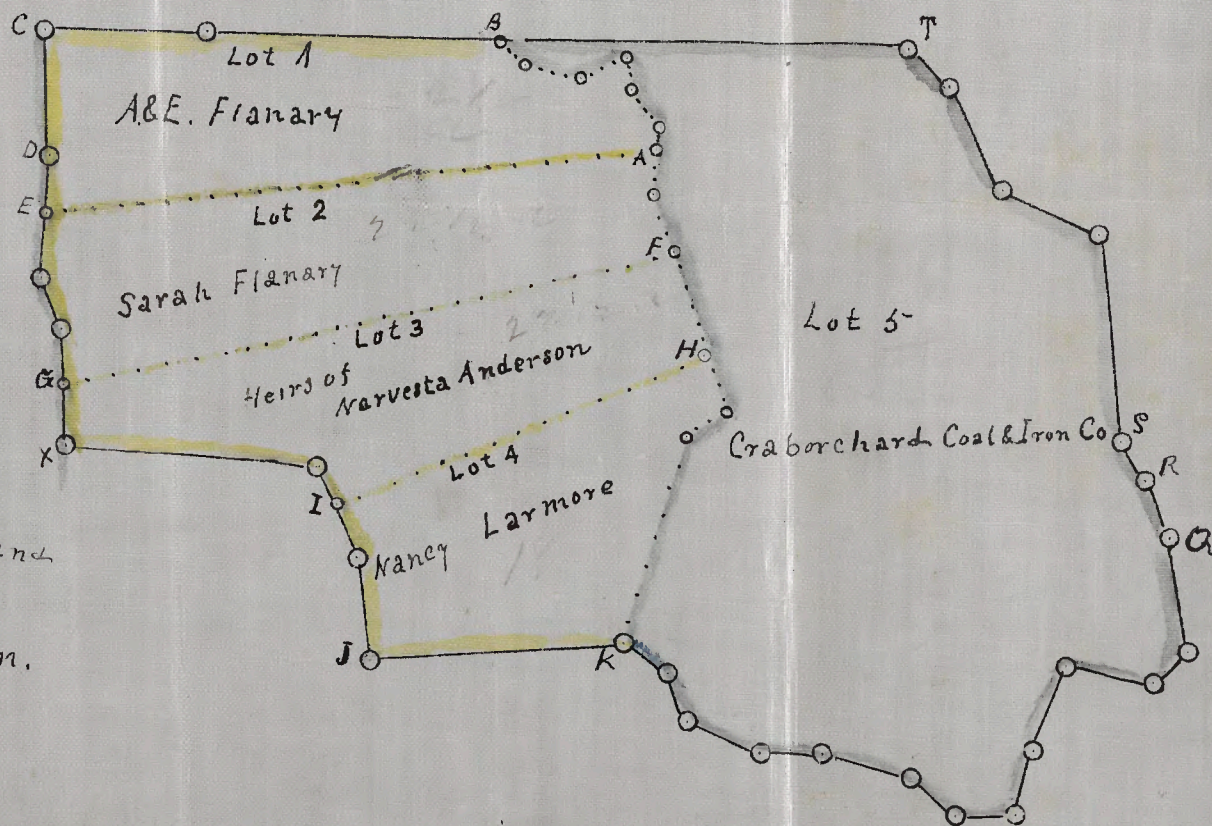 C
B
T
Lot 1
A&E. Flanary
D
A
E
Lot 2
F
Sarah Flanary
Lot 3
Lot 5
H
G
Heirs of
Narvesta Anderson
X
Craborchard Coal & Iron Co
S
Lot 4
R
I
Larmore
Q
Nancy
J
K